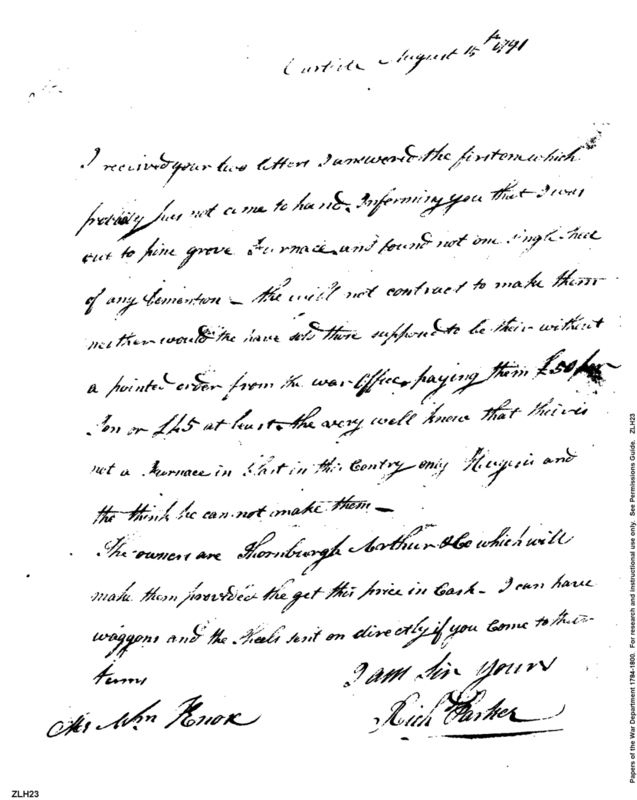 Carlisle August 15th 1791
I received your two letters I answered the first one which
probably has not came to hand. Informing you that I was
out to pine grove Furnace and found not one single
of any Dimention – the will not contract to make them
neither would the have sold those suppoud to be their without
a pointed order from the war Office, paying them £50 per
Ton or £45 at least – the very well know that their is
not a Furnace in Blast in this Contry only and
the think he can not make them –
The owners are Thornburgh Arthur & Co which will
make them provided the get this price in Cash – I can have
waggons and the sent on directly if you Come to their
terms
I am Sir yours
Mr Wm Knox
Rich Parker
Papers of the War Department 1784-1800. For research and instructional use only. See Permissions Guide. ZLH23
ZLH23